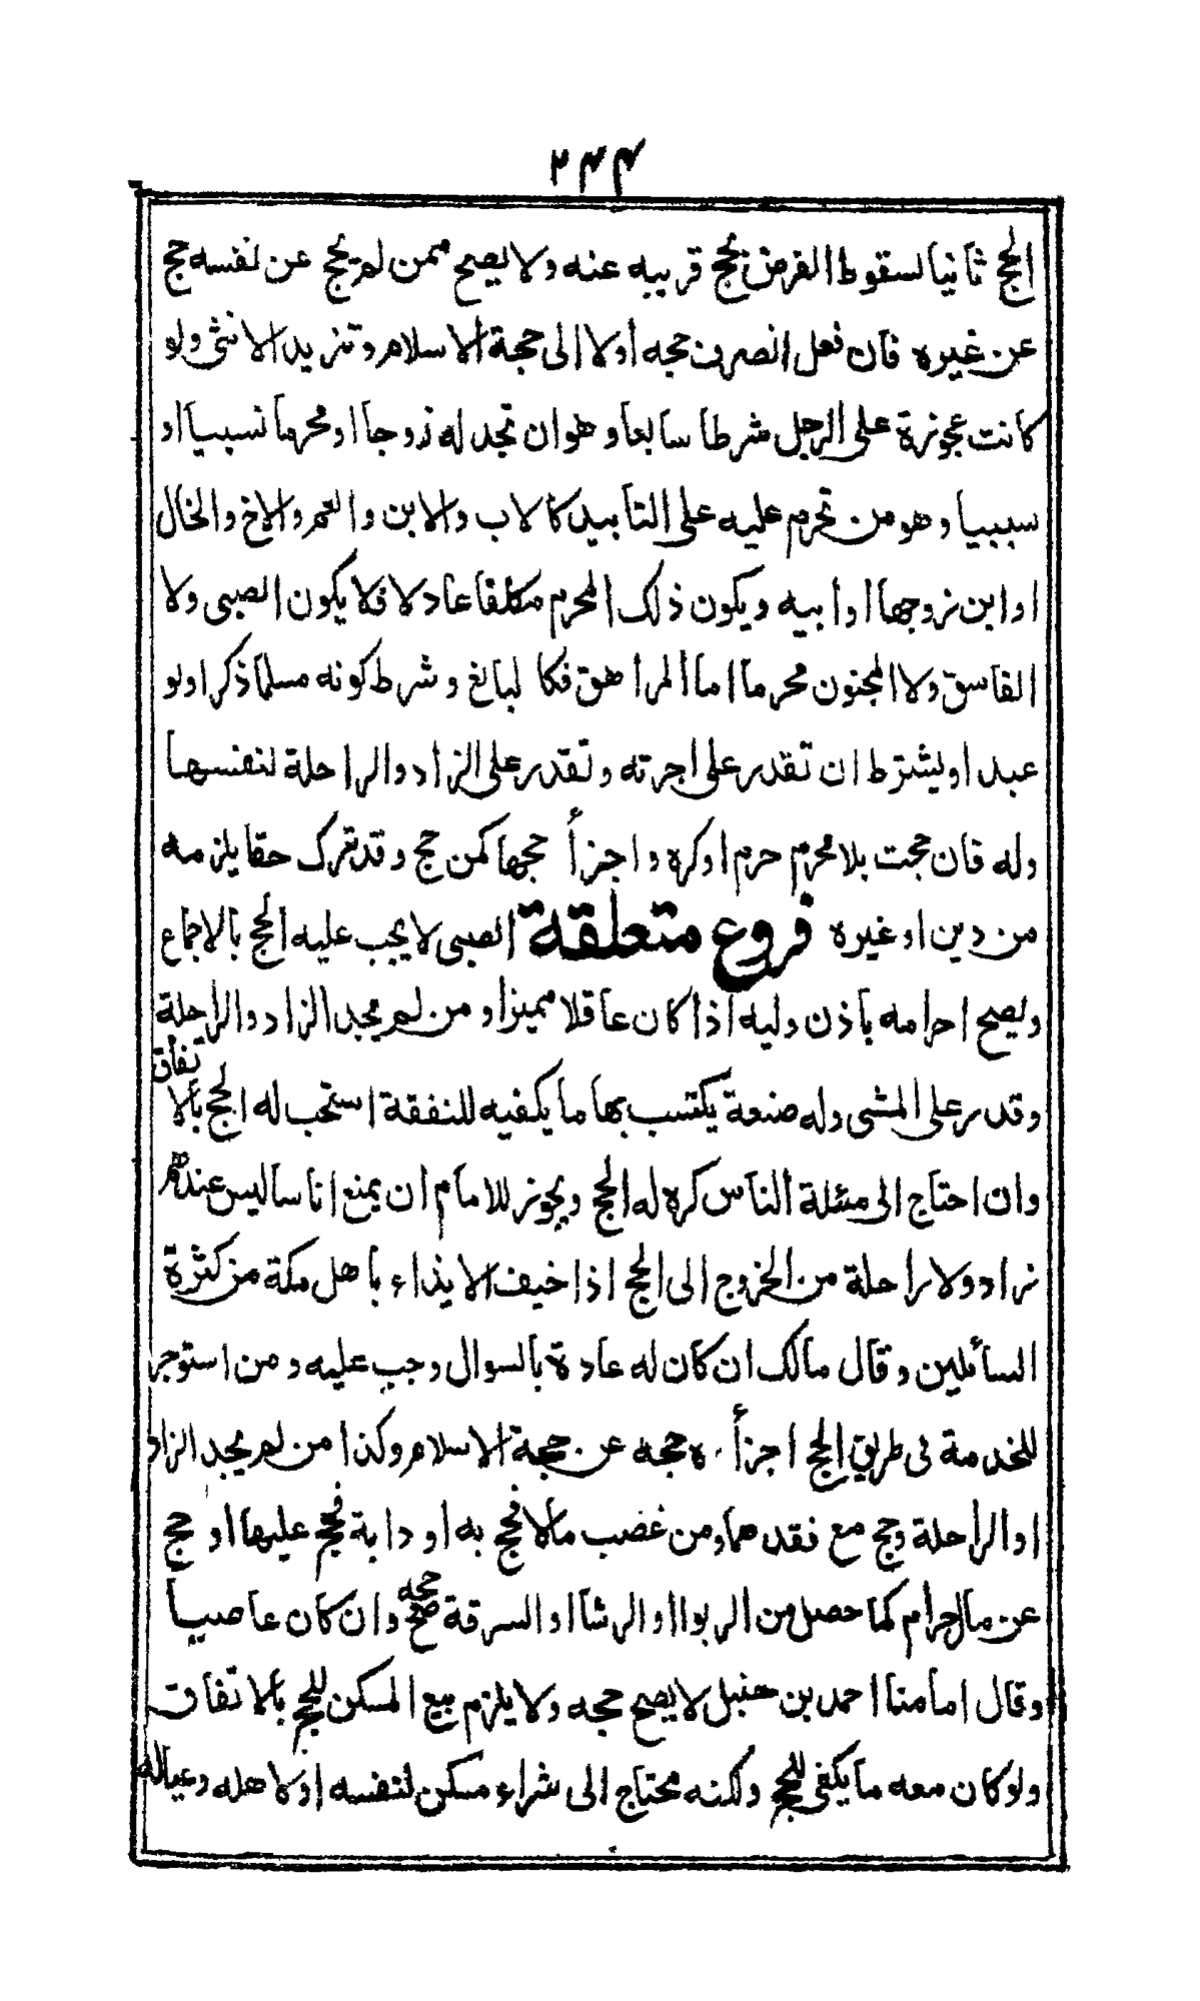 ٢٣٤
الحج ثانيا لسقوط الفرض بحج قريبه عنه ولا يصح ممن لم يحج عن نفسه حج
عن غيره فان فعل انصرف حجه أولا الى حجة الاسلام وتزيد الانثى ولو
كانت عجوزة على الرجل شرطا سابعا وهو ان تجد له زوجا او محرما نسبيا او
سببيا وهو من تحرم عليه على التأبيد كالاب والابن والعم والاخ والخال
او ابن زوجها او أبيه ويكون ذلك المحرم مكلفا عادلا فلا يكون الصبى ولا
الفاسق ولا المجنون محرما اما المراهق فكا لبالغ وشرط كونه مسلما ذكرا ولو
عبد او ليشترط ان تقدر على اجرته وتقدر على الزاد والراحلة لنفسها
وله فان حجت بلا محرم حرم او كره واجزأ حجها كمن حج وقد ترك حقا يلزمه
من دين او غيره فروع متعلقة الصبى لا يجب عليه الحج بالاجماع
ويصح احرامه بأذن وليه اذا كان عاقلا مميزا ومن لم يجد الزاد والراحلة
وقدر على المشى وله صنعة يكتسب بها ما يكفيه للنفقة استحب له الحج بالاتفاق
وان احتاج الى مسئلة الناس كره له الحج ويجوز للامام أن يمنع اناسا ليس عندهم
زاد ولا راحلة من الخروج الى الحج اذا خيف الايذاء بأهل مكة من كثرة
السائلين وقال مالك ان كان له عادة بالسوال وجب عليه ومن استوجر
للخدمة فى طريق الحج اجزأه حجه عن حجة الاسلام وكذا من لم يجد الزاد
او الراحلة وحج مع فقدهما ومن غضب مالا فحج به او دابة فحج عليها او حج
عن مال حرام كما حصل من الربوا او الرشا او السرقة صح حجه وان كان عاصيا
وقال امامنا احمد بن حنبل لا يصح حجه ولا يلزم بيع المسكن للحج بالاتفاق
ولو كان معه ما يكفى للحج ولكنه محتاج الى شراء مسكن لنفسه او كاهله وعياله